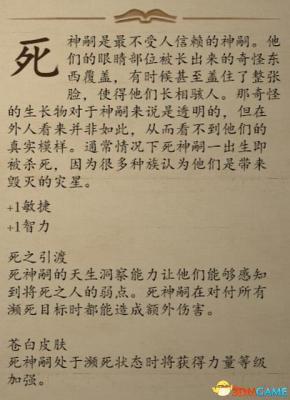 死
神嗣是最不受人信赖的神嗣。他
们的眼睛部位被长出来的奇怪东
西覆盖，有时候甚至盖住了整张
脸，使得他们长相骇人。那奇怪
的生长物对于神嗣来说是透明的，但在
外人看来并非如此，从而看不到他们的
真实模样。通常情况下死神嗣一出生即
被杀死，因为很多种族认为他们是带来
毁灭的灾星。
+1敏捷
+1智力
死之引渡
死神嗣的天生洞察能力让他们能够感知
到将死之人的弱点。死神嗣在对付所有
濒死目标时都能造成额外伤害。
苍白皮肤
死神嗣处于濒死状态时将获得力量等级
加强。
3DMGAME